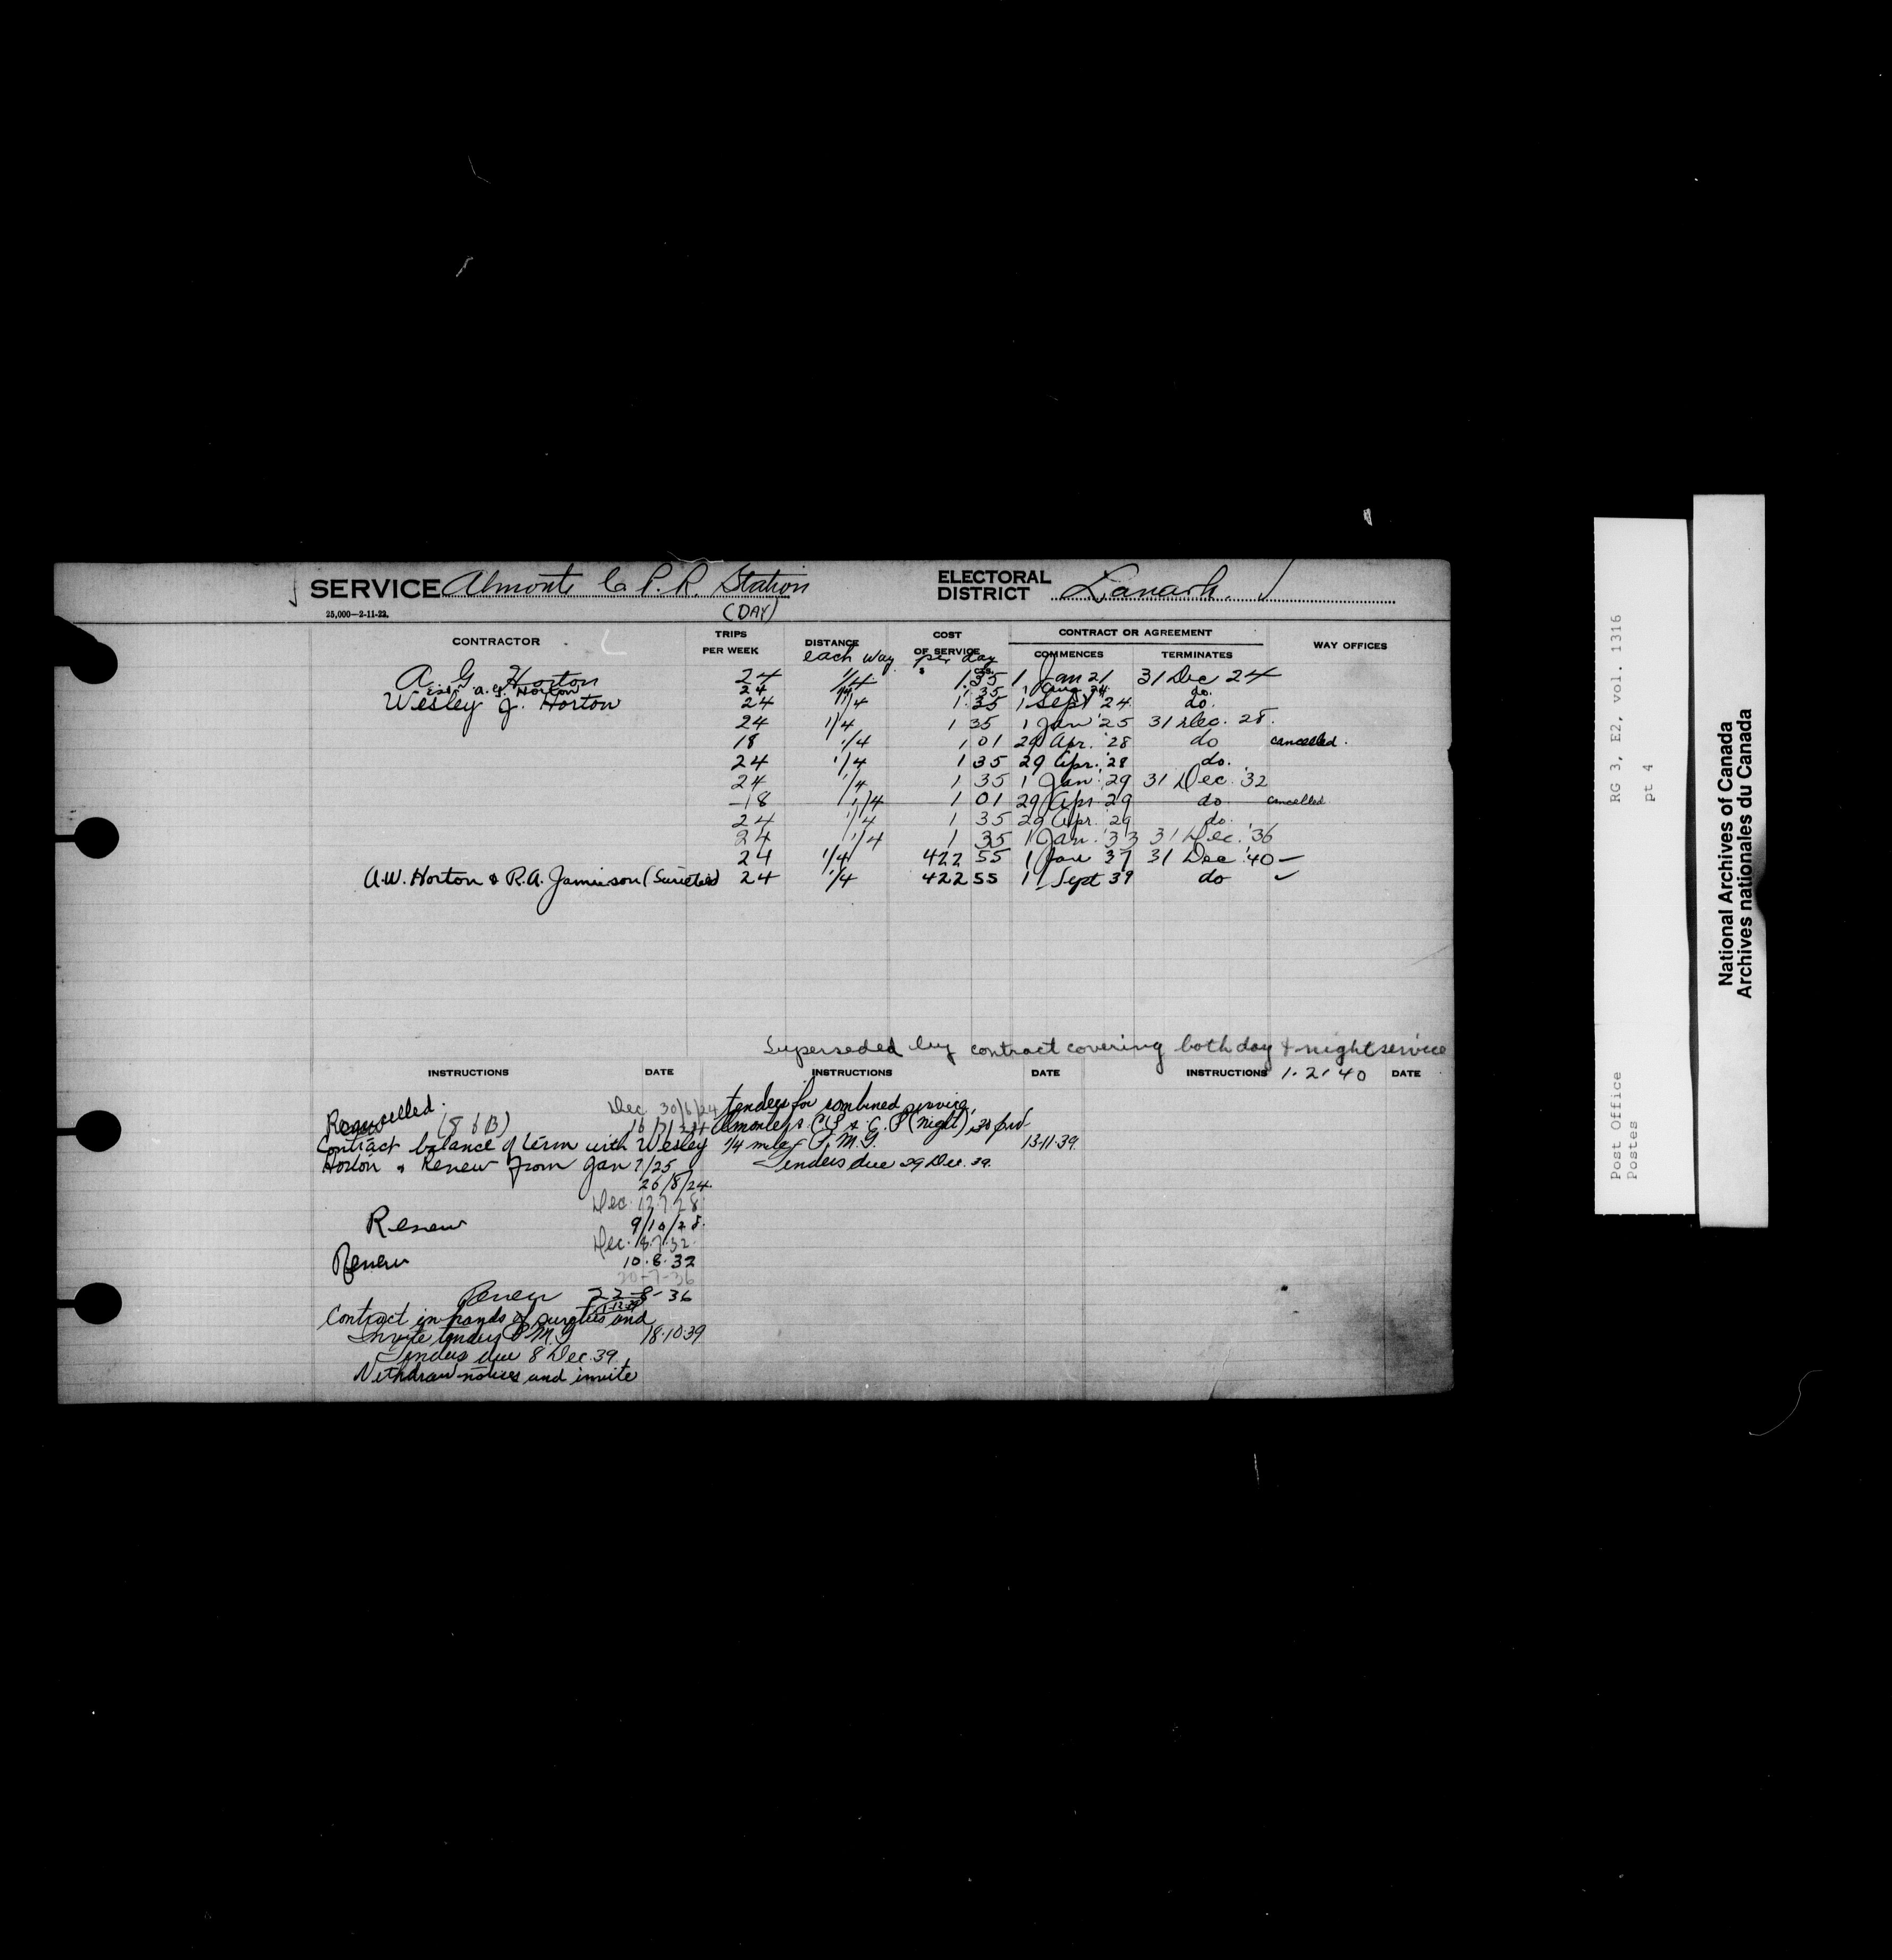 SERVICE Almonte & C.P.R. Station
(DAY)
ELECTORAL DISTRICT Lanark
25,000—2-11-22.
CONTRACTOR TRIPS PER WEEK DISTANCE each way COST OF SERVICE per day CONTRACT OR AGREEMENT COMMENCES TERMINATES WAY OFFICES
A. G. Horton 24 1/4 1.35 1 Jan 21 31 Dec 24
Est. A. G. Horton 24 1/4 1.35 1 Aug 24 do.
Wesley J. Horton 24 1/4 1.35 1 Sept 24 do.
24 1/4 1 35 1 Jan '25 31 Dec. 28.
18 1/4 1 01 29 Apr. '28 do cancelled.
24 1/4 1 35 29 Apr. '28 do.
24 1/4 1 35 1 Jan '29 31 Dec. '32
18 1/4 1 01 29 Apr 29 do cancelled.
24 1/4 1 35 29 Apr. 29 do.
24 1/4 1 35 1 Jan. '33 31 Dec. '36
24 1/4 422 55 1 Jan 37 31 Dec '40
A.W. Horton & R.A. Jamieson (Sureties) 24 1/4 422 55 1 Sept 39 do
Superseded by contract covering both day & night service
1.2.40
INSTRUCTIONS DATE INSTRUCTIONS DATE INSTRUCTIONS DATE
Cancelled. Dec 30/6/24
Renew (86B) 16/7/24
Contract balance of term with Wesley
Horton & Renew from Jan 1/25
26/8/24
Dec. 12.7.28
Renew 9/10/28.
Dec. 8.7.32.
Renew 10.8.32
20-7-36
Renew 22-8-36
Contract in hands of sureties and
Invite tenders P.M.G 18.10.39
Tenders due 8 Dec. 39.
Withdraw notices and invite
tenders for combined service,
1/4 mile P.M.G. 13.11.39
Tenders due 29 Dec. 39.
RG 3, E2, vol. 1316
pt 4
Post Office
Postes
National Archives of Canada
Archives nationales du Canada